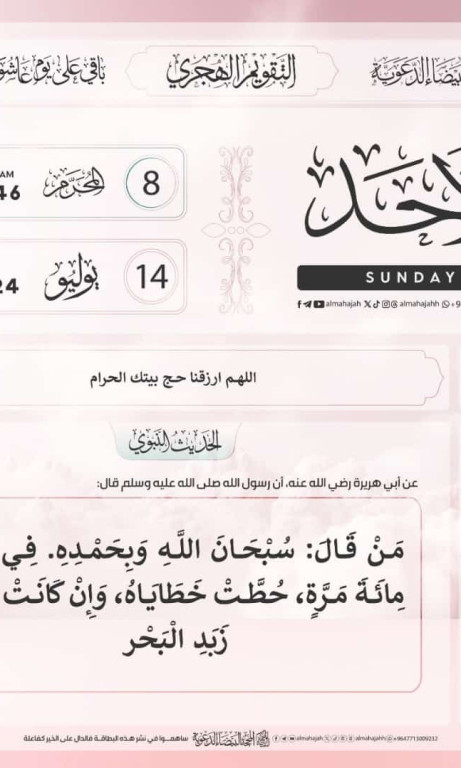 التقويم الهجري
باقي على يوم
8
المحرم
14
يوليو
SUNDAY
almahajah
almahajahh
اللهم ارزقنا حج بيتك الحرام
الحديث النبوي
عن أبي هريرة رضي الله عنه، أن رسول الله صلى الله عليه وسلم قال:
مَنْ قَالَ: سُبْحَانَ اللَّهِ وَبِحَمْدِهِ. فِي
مِائَةَ مَرَّةٍ، حُطَّتْ خَطَايَاهُ، وَإِنْ كَانَتْ
زَبَدِ الْبَحْر
almahajah almahajahh +9647713009232
ساهمــوا في نشر هـذه البطاقـة فالدال على الخير كفاعلة